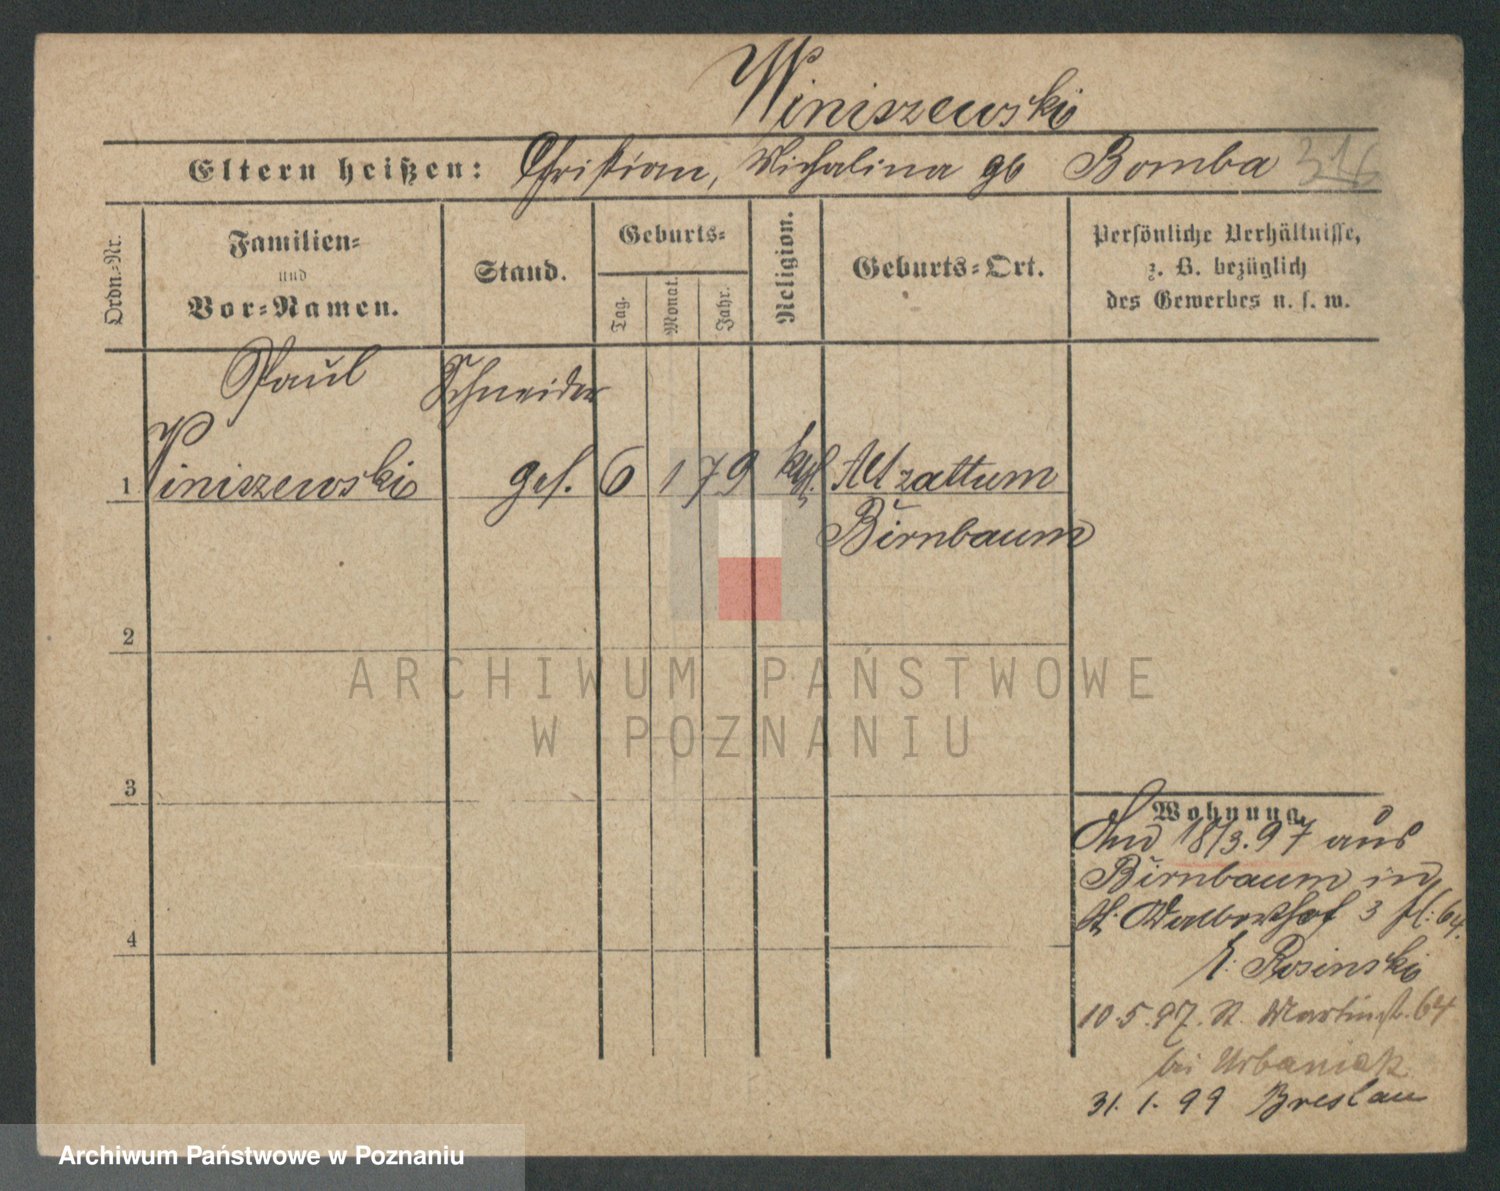 Winiszewski
Eltern heißen: Christian, Michalina gb Bomba 316
Ordn.-Nr.
Familien-
und
Vor-Namen.
Stand.
Geburts-
Tag.
Monat.
Jahr.
Religion.
Geburts-Ort.
Persönliche Verhältnisse,
z. B. bezüglich
des Gewerbes u. s. w.
Paul Schneider
1 Winiszewski ges. 6 1 79 kath. Altzattum
Birnbaum
2
3
4
Wohnung.
18/3.97 aus
Birnbaum in
3 64
Rosinski
10.5.97. St. Martinstr. 64
bei Urbaniak
31.1.99 Breslau
ARCHIWUM PAŃSTWOWE
W POZNANIU
Archiwum Państwowe w Poznaniu